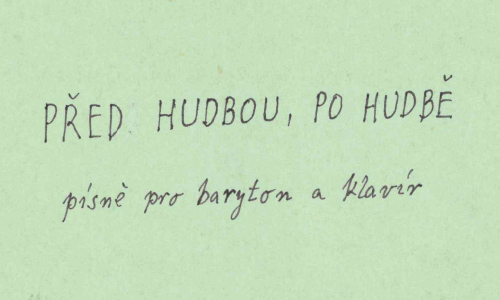 PŘED HUDBOU, PO HUDBĚ
písně pro baryton a klavír